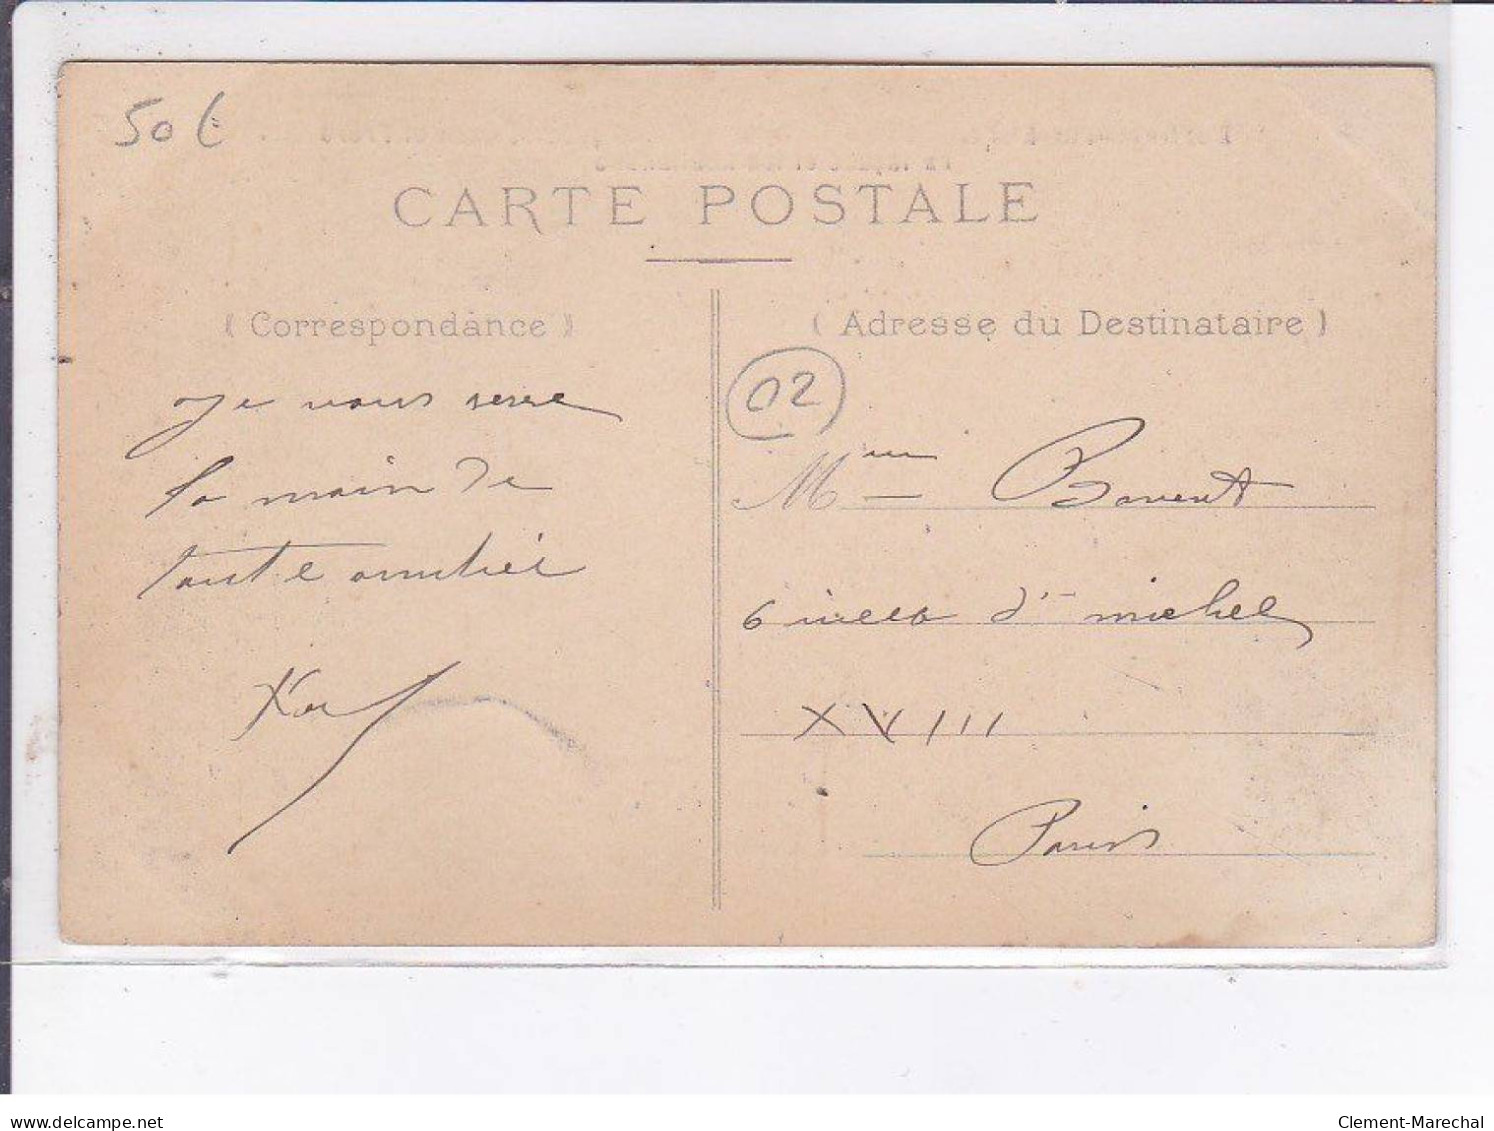 50 €
CARTE POSTALE
( Correspondance )
( Adresse du Destinataire )
02
Je vous serre
la main de
toute amitié
Mme
6 villa St michel
XVIII
Paris
delcampe.net
Clement-Marechal